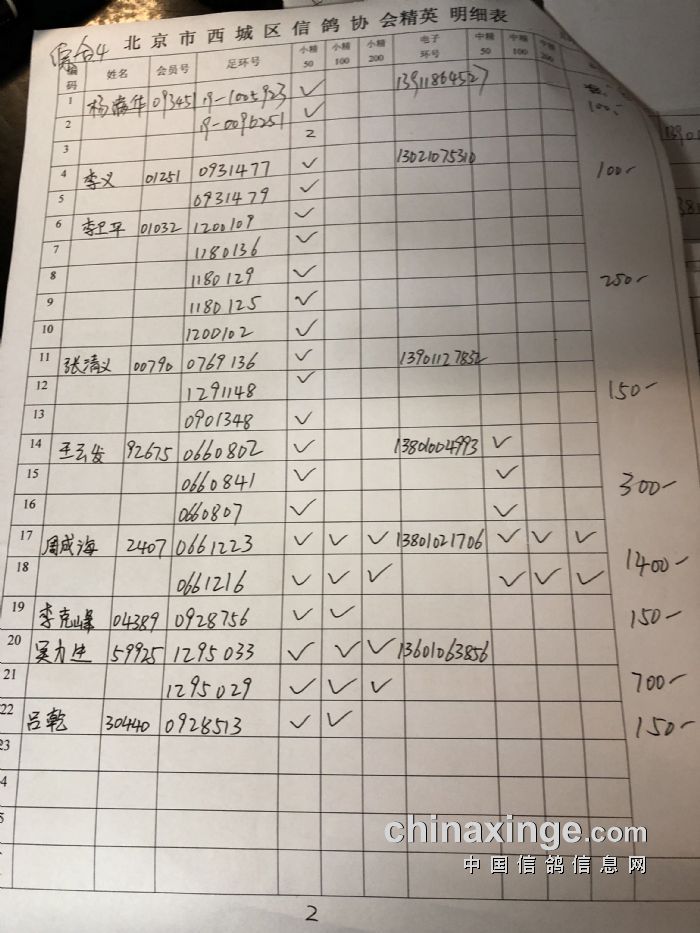 综合4 北京市西城区信鸽协会精英 明细表
编码 姓名 会员号 足环号 小精50 小精100 小精200 电子环号 中精50 中精100 中精200
1 杨满华 09345 19-1005923 ✓ 13911864527 100-
2 19-0096251 ✓
3 2
4 李义 01251 0931477 ✓ 13021075310 100-
5 0931479 ✓
6 李卫平 01032 1200109 ✓
7 1180136 ✓
8 1180129 ✓ 250-
9 1180125 ✓
10 1200102 ✓
11 张清义 00790 0769136 ✓ 13901127852
12 1291148 ✓ 150-
13 0901348 ✓
14 王云发 92675 0660802 ✓ 13801004993 ✓
15 0660841 ✓ ✓ 300-
16 0660807 ✓ ✓
17 周成海 2407 0661223 ✓ ✓ ✓ 13801021706 ✓ ✓ ✓
18 0661216 ✓ ✓ ✓ ✓ ✓ ✓ 1400-
19 李克峰 04389 0928756 ✓ ✓ 150-
20 吴力 59925 1295033 ✓ ✓ ✓ 13601063856
21 1295029 ✓ ✓ ✓ 700-
22 吕乾 30440 0928513 ✓ ✓ 150-
23
4
5
chinaxinge.com
中国信鸽信息网
2